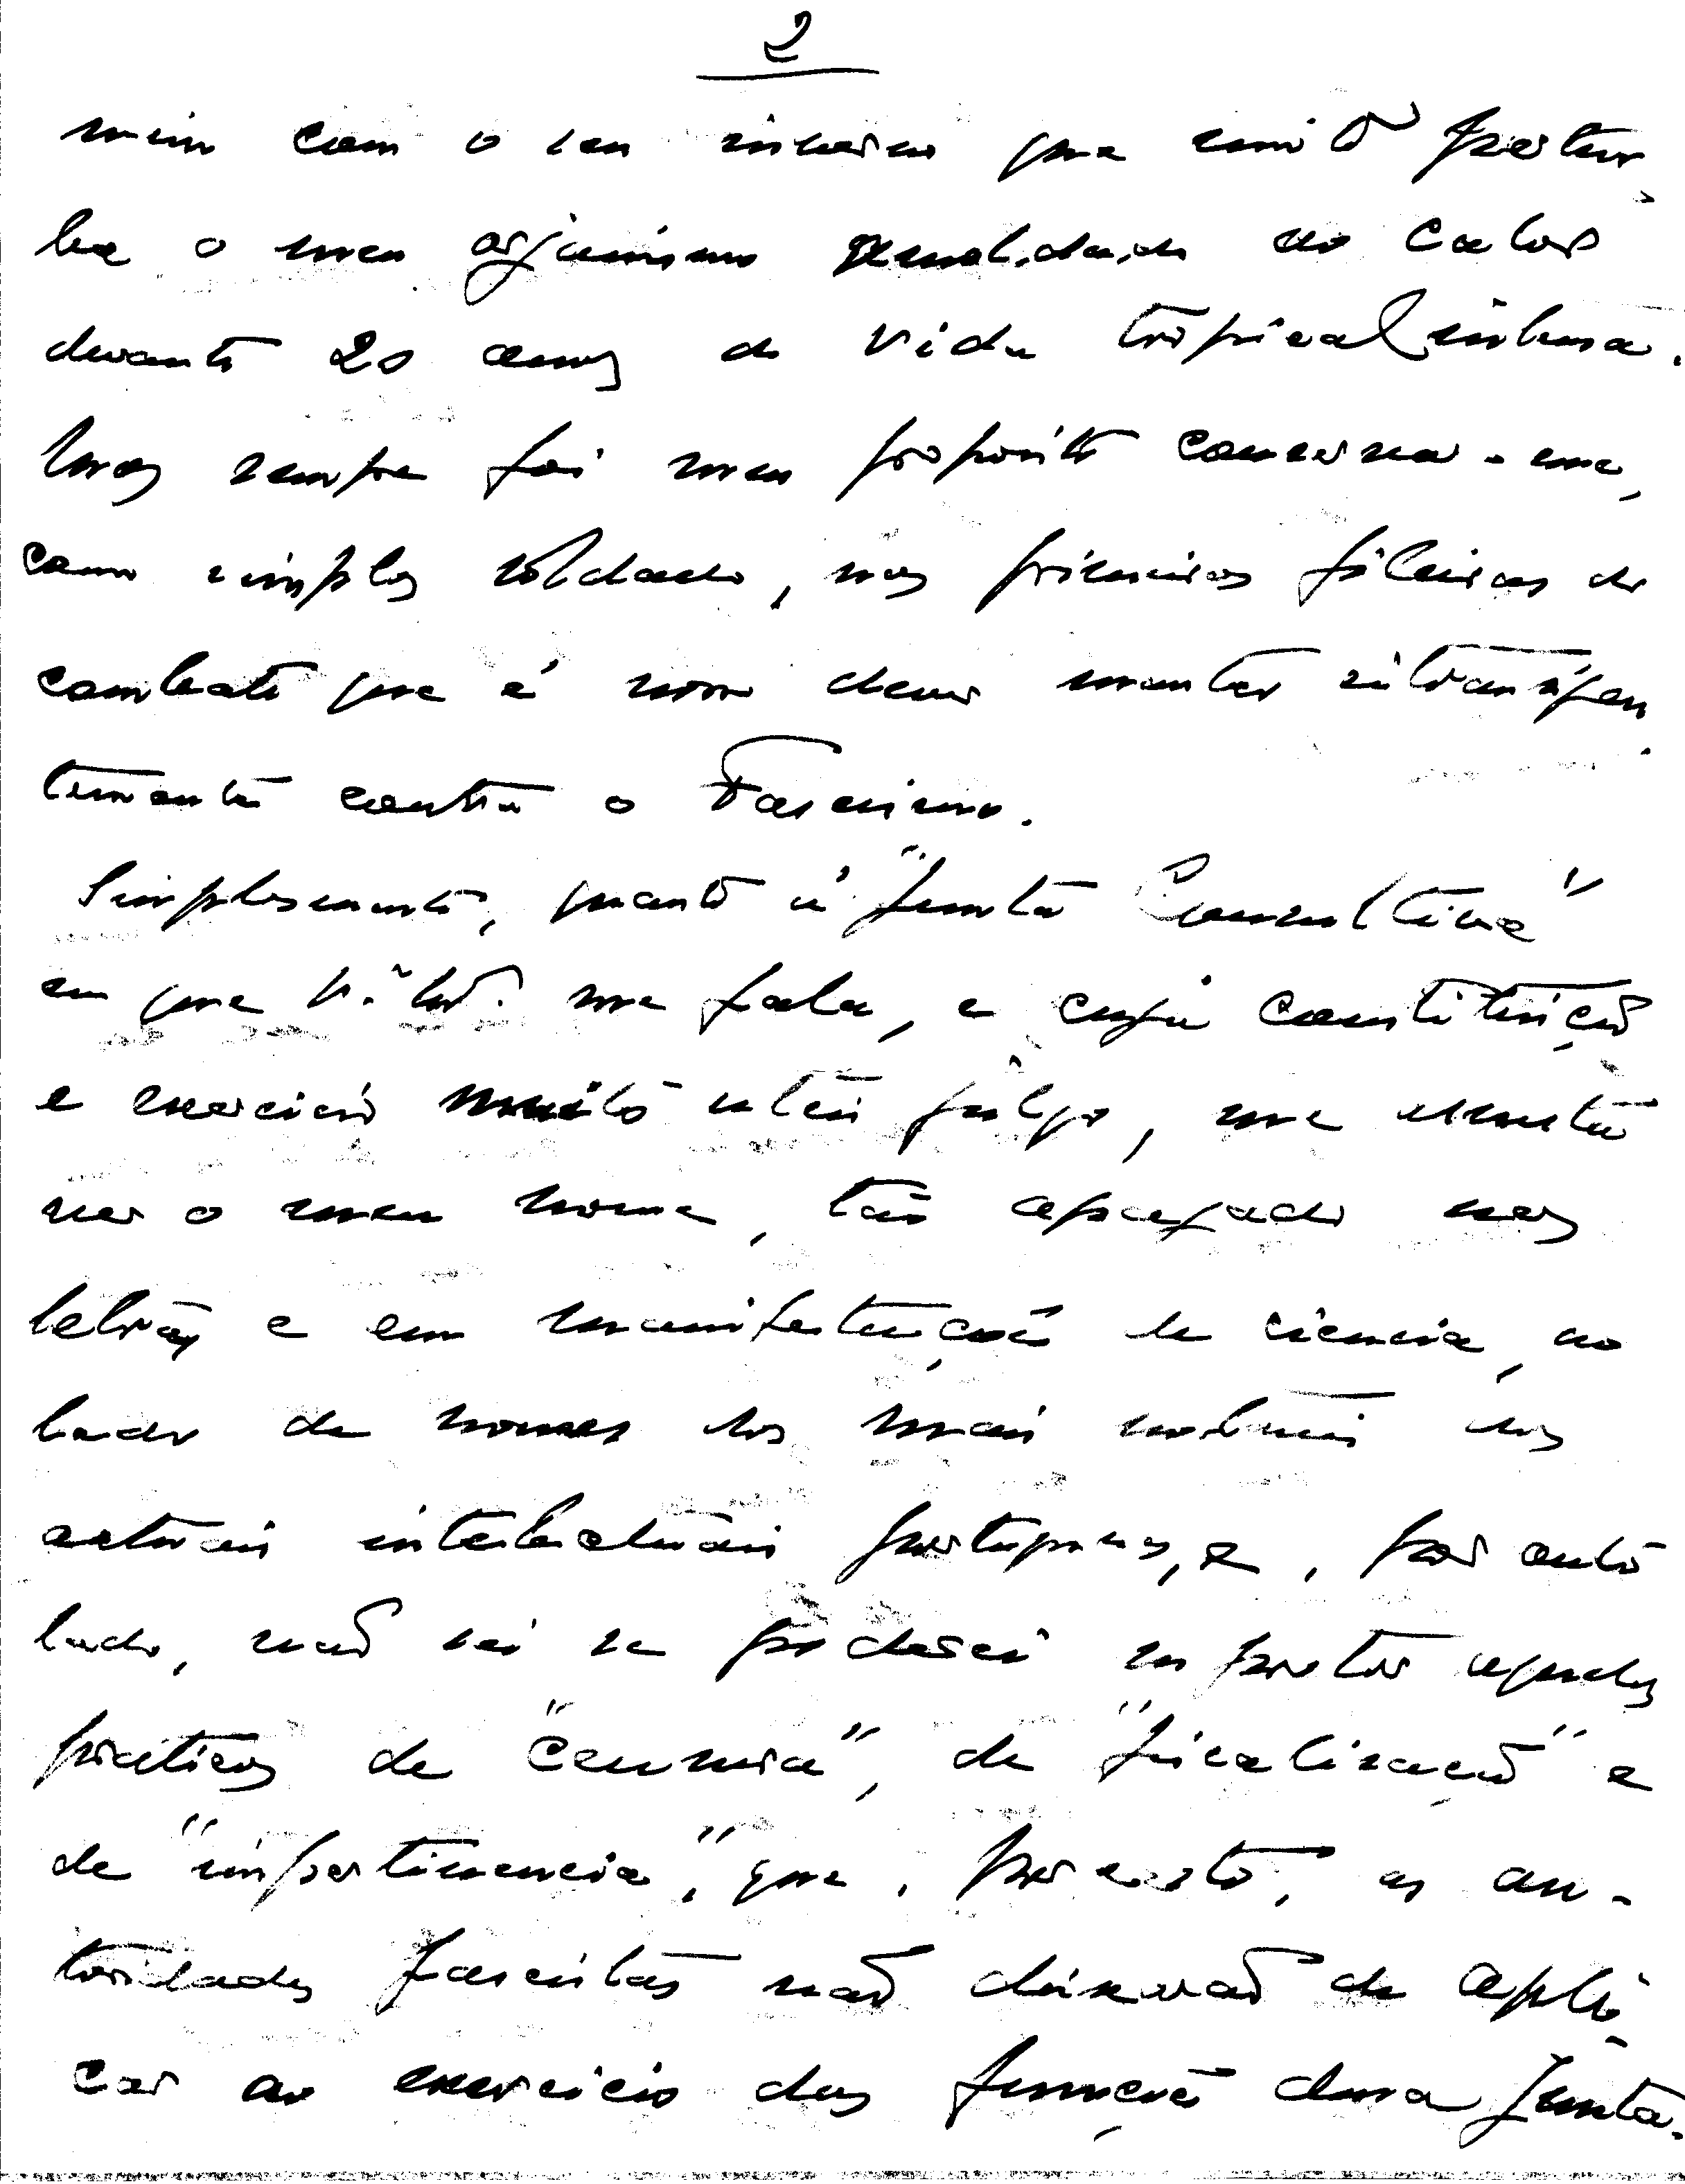 2
mim com o seu inverno que muito pertur-
ba o meu organismo remolidado ao calor
durante 20 anos de vida tropical intensa.
Mas sempre foi meu proposito conservar-me,
como simples soldado, nas primeiras fileiras do
combate que é nosso dever manter intransigen-
temente contra o Fascismo.
Simplesmente, quanto á "Junta Consultiva"
em que me fala, e cuja constituição
e exercicio muito uteis julgo, me assusta
ver o meu nome, tão apagado nas
letras e em manifestações de ciencia, ao
lado de nomes dos mais notaveis dos
actuais intelectuais portugueses, e, por outro
lado, não sei se poderei suportar aquelas
praticas de "censura", de "fiscalisação" e
de "impertinencia", que, por certo, as au-
toridades fascistas não deixarão de apli-
car ao exercicio das funções dessa Junta.